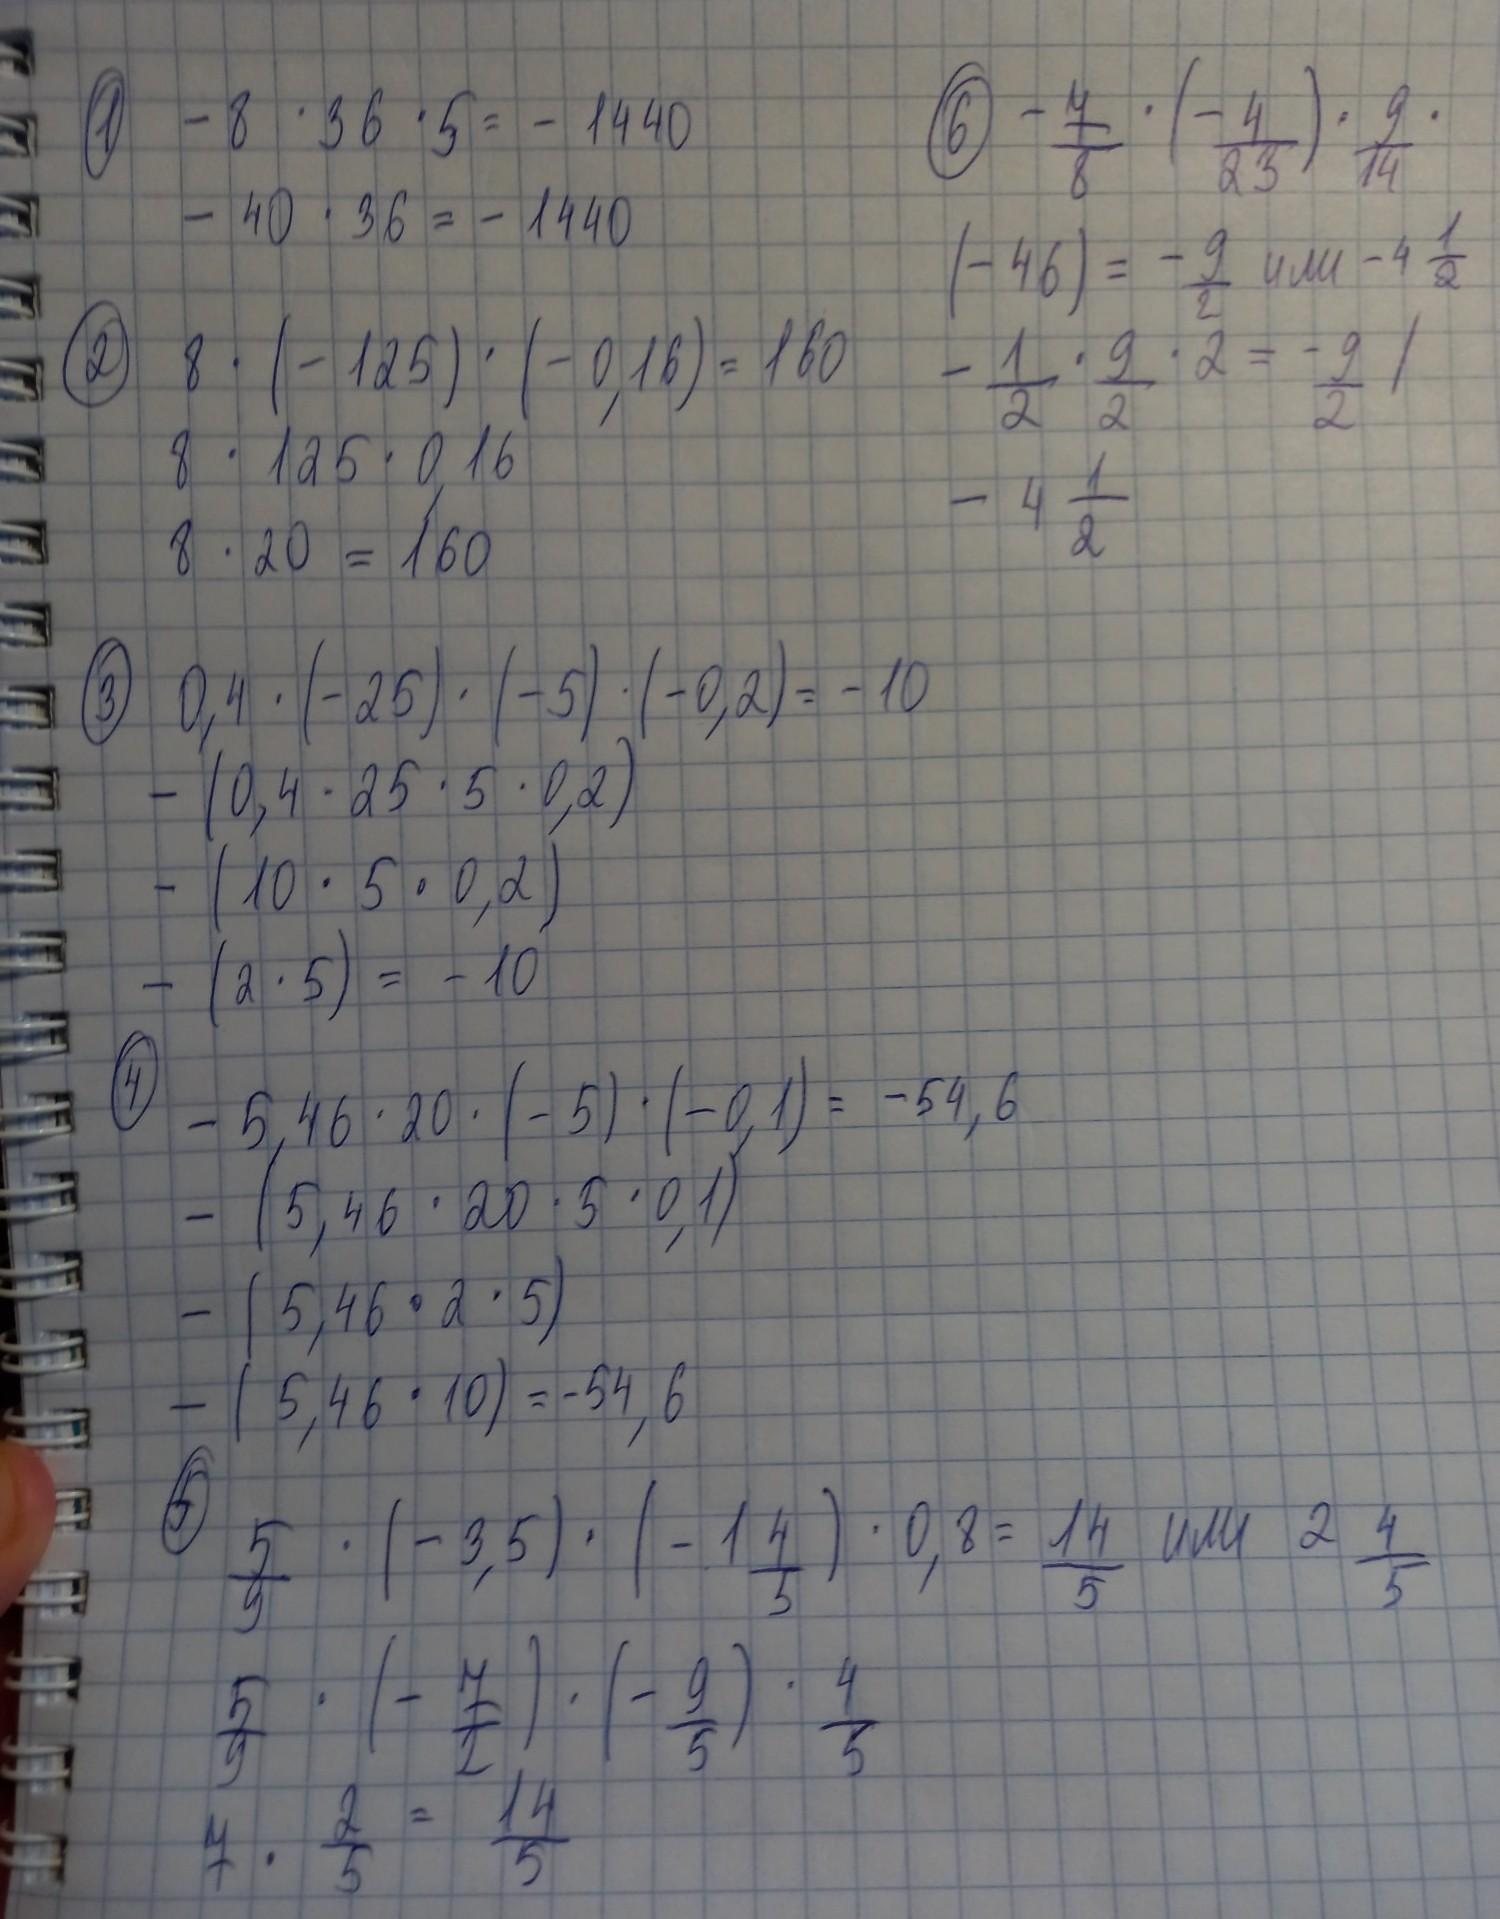 ① -8 · 36 · 5 = -1440
-40 · 36 = -1440
② 8 · (-125) · (-0,16) = 160
8 · 125 · 0,16
8 · 20 = 160
③ 0,4 · (-25) · (-5) · (-0,2) = -10
-(0,4 · 25 · 5 · 0,2)
-(10 · 5 · 0,2)
-(2 · 5) = -10
④ -5,46 · 20 · (-5) · (-0,1) = -54,6
-(5,46 · 20 · 5 · 0,1)
-(5,46 · 2 · 5)
-(5,46 · 10) = -54,6
⑤ 5/9 · (-3,5) · (-1 4/5) · 0,8 = 14/5 или 2 4/5
5/9 · (-7/2) · (-9/5) · 4/5
7 · 2/5 = 14/5
⑥ -7/8 · (-4/23) · 9/14 ·
(-46) = -9/2 или -4 1/2
-1/2 · 9/2 · 2 = -9/2 /
-4 1/2